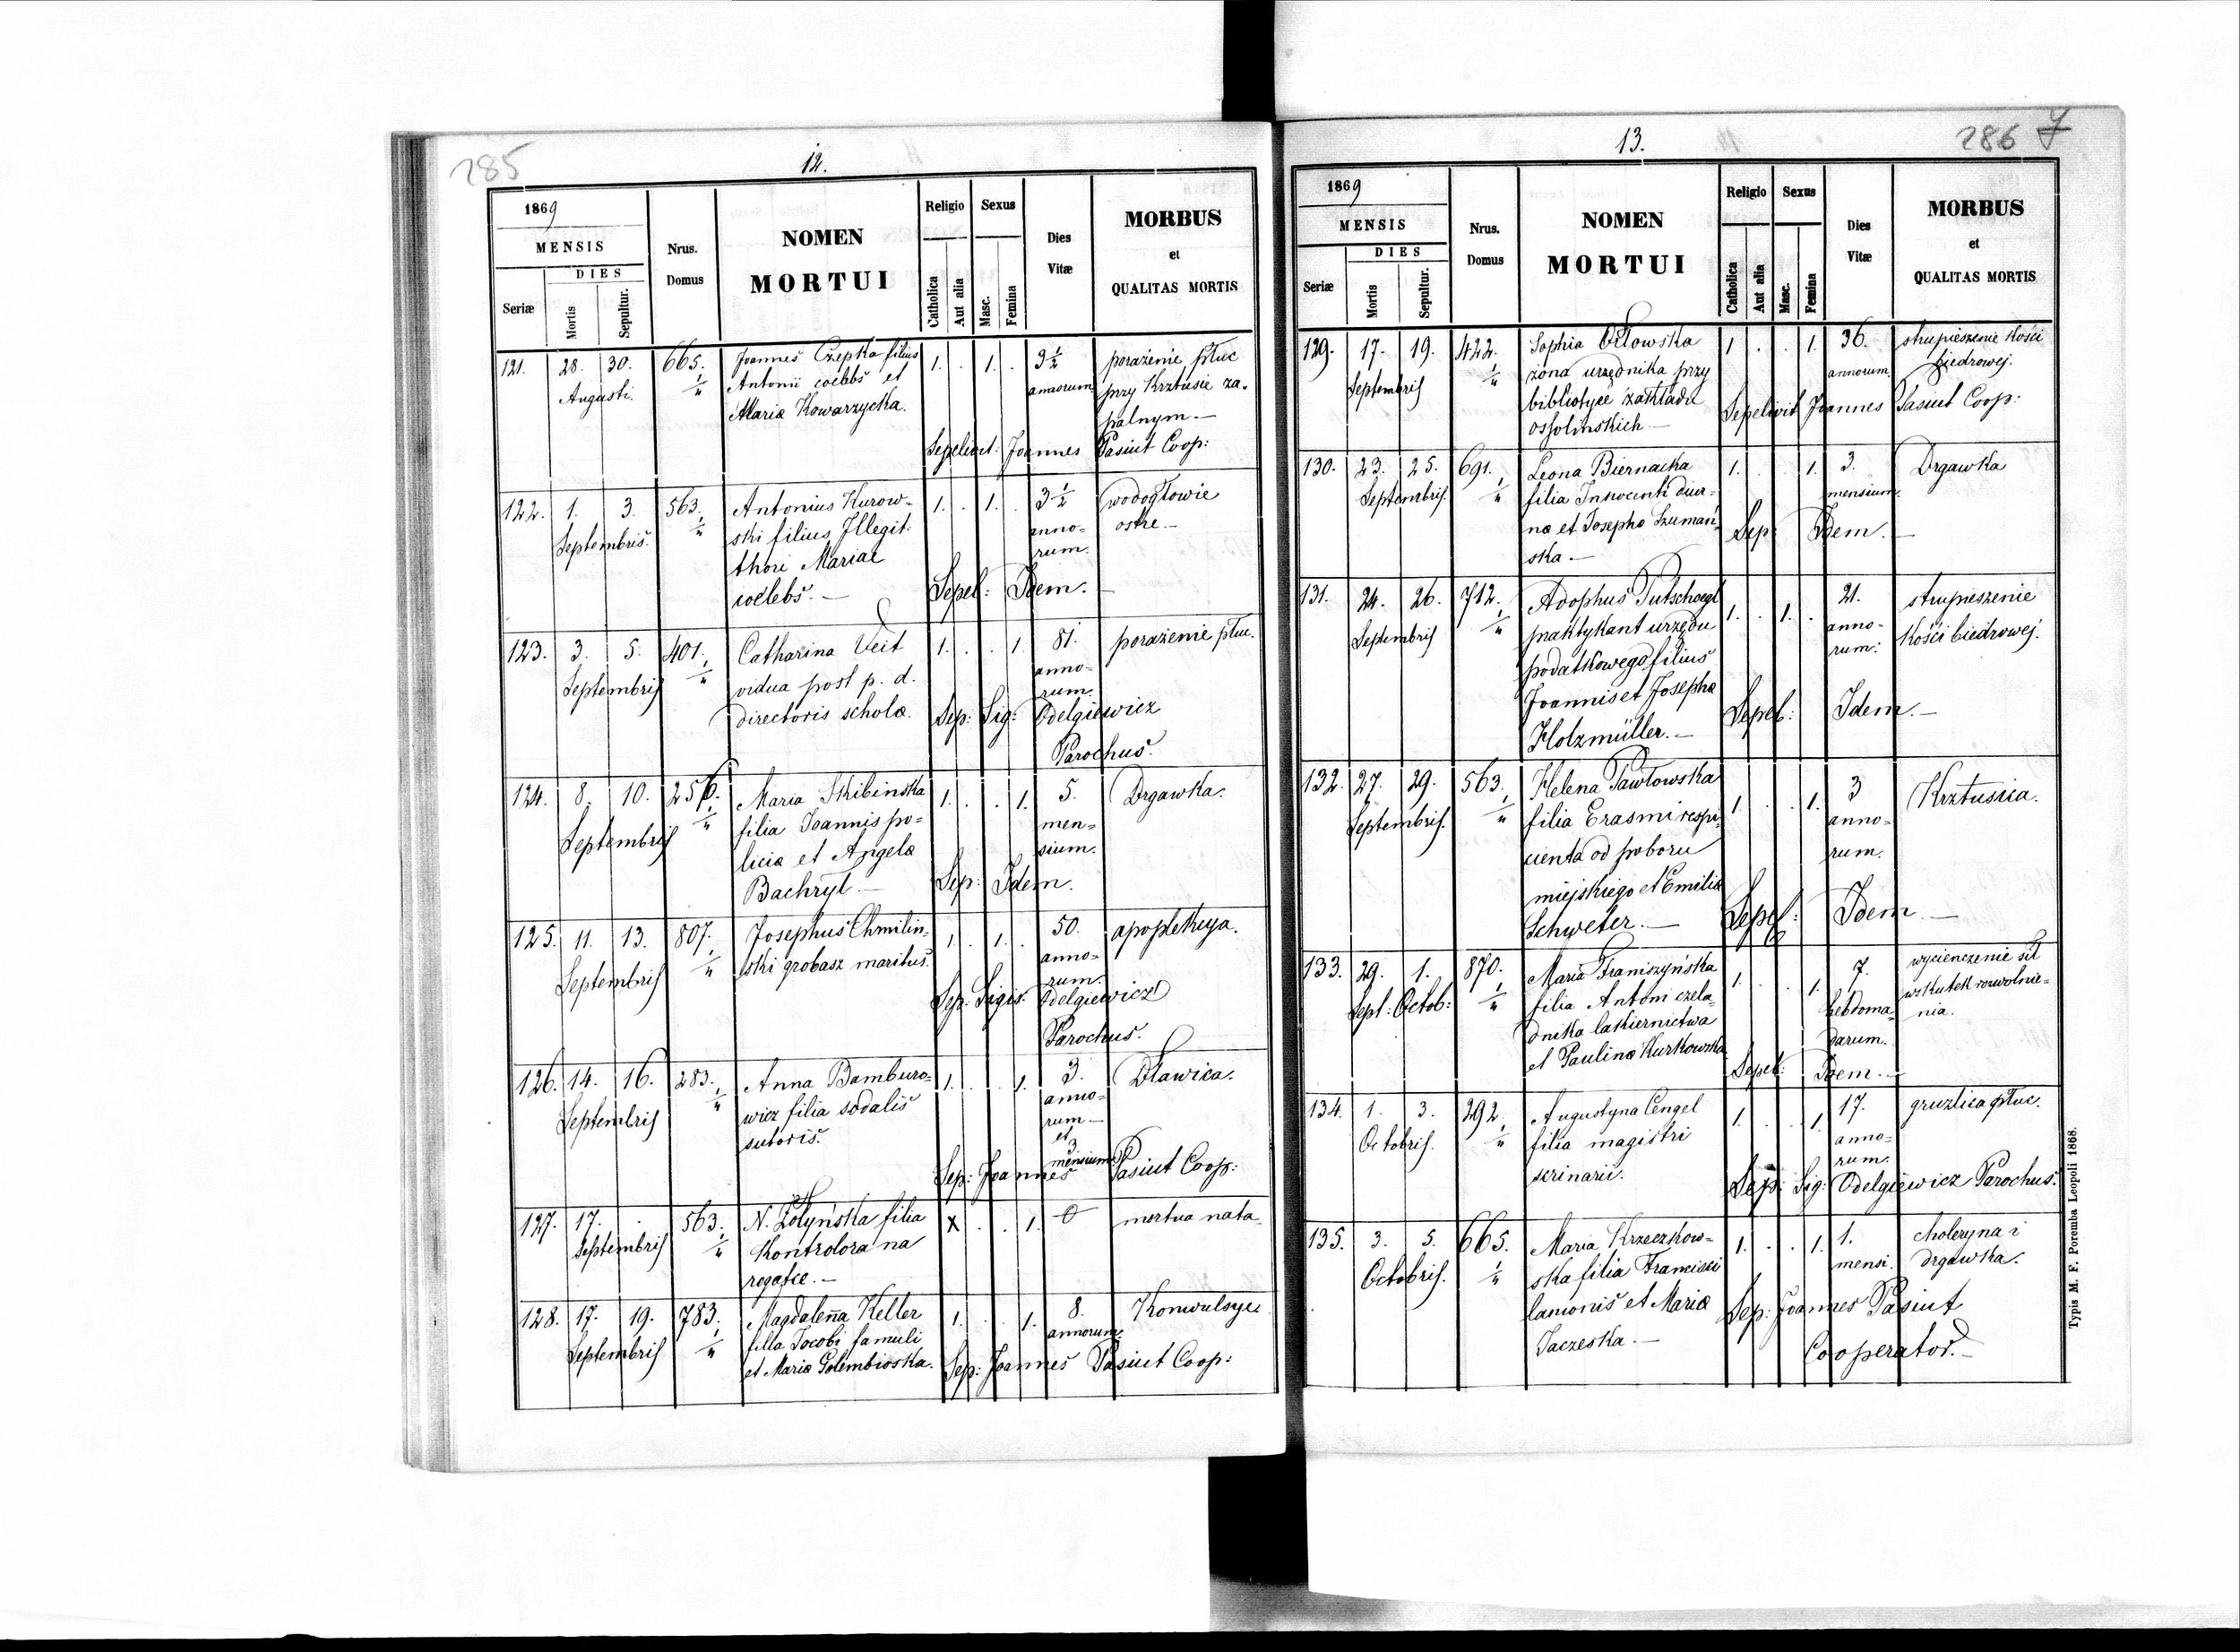 285
12.
1869
MENSIS
DIES
Seriæ
Mortis
Sepultur.
Nrus.
Domus
NOMEN
MORTUI
Religio
Catholica
Aut alia
Sexus
Masc.
Femina
Dies
Vitæ
MORBUS
et
QUALITAS MORTIS
121. 28. 30. 665. Joannes Czepka filius 1. . 1. . 3½ porażenie płuc
Augusti. 1/4 Antonii coelebs et annorum przy Krztusie za-
Maria Kowarzycka. palnym.—
Sepelivit: Joannes Pasiut Coop:
122. 1. 3. 563. Antonius Kurow- 1. . 1. . 3½ wodogłowie
Septembris. 1/4 ski filius Illegit. anno- ostre.—
thori Mariae rum.
coelebs.— Sepel: Idem.—
123. 3. 5. 401. Catharina Veit 1. . . 1. 81. porażenie płuc.
Septembris 1/4 vidua post p. d. anno-
directoris scholæ. rum.
Sep: Sig: Odelgiewicz
Parochus.
124. 8. 10. 256. Maria Skibinska 1. . . 1. 5. Drgawka.
Septembris 1/4 filia Joannis po- men-
licia et Angela sium.
Bachryt.— Sep: Idem.
125. 11. 13. 807. Josephus Chmilin- 1. . 1. . 50. apoplekcya.
Septembris 1/4 ski grobasz maritus. anno-
rum.
Sep: Sigis: Odelgiewicz
Parochus.
126. 14. 16. 283. Anna Bamburo- 1. . . 1. 3. Dławica.
Septembris 1/4 wicz filia sodalis anno-
sutoris. rum—
et
3
mensium
Sep: Joannes Pasiut Coop:
127. 17. . 563. N. Żołyńska filia X . . 1. 0 mortua nata
Septembris 1/4 Kontrolora na
rogatce.—
128. 17. 19. 783. Magdalena Keller 1. . . 1. 8. Konwulsye
Septembris 1/4 filia Jocobi famuli annorum.
et Maria Golembioska. Sep: Joannes Pasiut Coop:
13.
286
1869
MENSIS
DIES
Seriæ
Mortis
Sepultur.
Nrus.
Domus
NOMEN
MORTUI
Religio
Catholica
Aut alia
Sexus
Masc.
Femina
Dies
Vitæ
MORBUS
et
QUALITAS MORTIS
129. 17. 19. 422. Sophia Orłowska 1 . . 1. 36. strupieszenie kości
Septembris 1/4 żona urzędnika przy annorum. biedrowej.
bibliotyce zakładu
ossolinskich— Sepelivit Joannes Pasiut Coop:
130. 23. 25. 691. Leona Biernacka 1. . . 1. 3. Drgawka
Septembris. 1/4 filia Innocenti diur- mensium
næ et Josepha Szumań-
ska.— Sep: Idem.—
131. 24. 26. 712. Adophus Putschoegl 1. . 1. . 21. strupieszenie
Septembris 1/4 praktykant urzędu anno- kości biedrowej.
podatkowego filius rum:
Joannis et Josepha
Holzmüller.— Sepel: Idem.—
132. 27. 29. 563. Helena Pawłowska 1. . . 1. 3 Krztusica.
Septembris. 1/4 filia Erasmi respi- anno-
cienta od poboru rum.
miejskiego et Emilia
Schweter.— Sepel: Idem—
133. 29. 1. 870. Maria Franiszyńska 1. . . 1. 7. wycienczenie sił
Sept: Octob: 1/4 filia Antoni czela- hebdoma- wskutek rozwolnie-
dnika lakiernictwa darum. nia.
et Paulina Kurkowska Sepel: Idem.—
134. 1. 3. 292. Augustyna Cengel 1. . . 1. 17. gruzlica płuc.
Octobris. 1/4 filia magistri anno-
scrinarii. rum.
Sep: Sig: Odelgiewicz Parochus.
135. 3. 5. 665. Maria Krzeczkow- 1. . . 1. 1. choleryna i
Octobris. 1/4 ska filia Francisci mensi. drgawka.
lanionis et Maria
Jaczeska.— Sep: Joannes Pasiut
Cooperator.—
Typis M. F. Poremba Leopoli 1868.